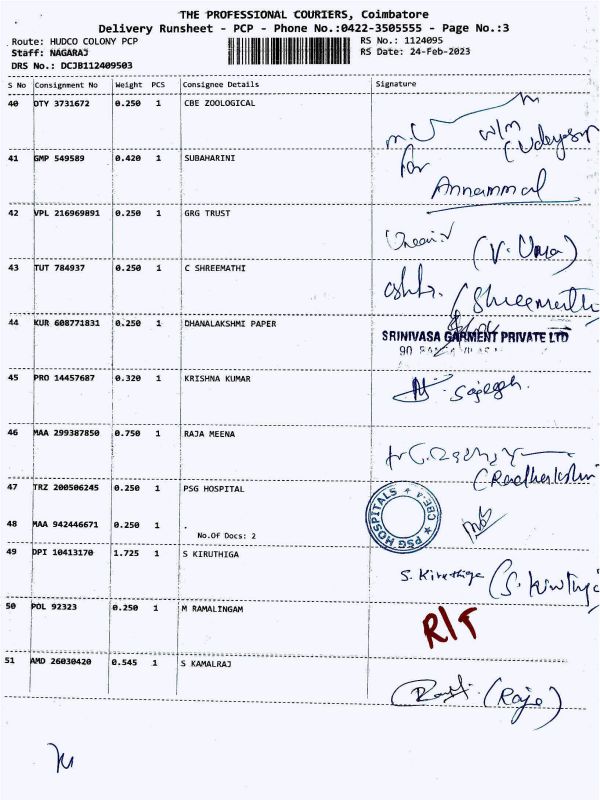 THE PROFESSIONAL COURIERS, Coimbatore
Delivery Runsheet - PCP - Phone No.:0422-3505555 - Page No.:3
Route: HUDCO COLONY PCP
RS No.: 1124095
Staff: NAGARAJ
RS Date: 24-Feb-2023
DRS No.: DCJB112409503
S No Consignment No Weight PCS Consignee Details Signature
40 OTY 3731672 0.250 1 CBE ZOOLOGICAL
W/m
(Udaya
41 GMP 549589 0.420 1 SUBAHARINI
for
Annammal
42 VPL 216969891 0.250 1 GRG TRUST
(V. Uma)
43 TUT 784937 0.250 1 C SHREEMATHI
(Shreemathi
44 KUR 608771831 0.250 1 DHANALAKSHMI PAPER
SRINIVASA GARMENT PRIVATE LTD
90
45 PRO 14457687 0.320 1 KRISHNA KUMAR
46 MAA 299387850 0.750 1 RAJA MEENA
47 TRZ 200506245 0.250 1 PSG HOSPITAL
PSG HOSPITALS * CBE-4 *
48 MAA 942446671 0.250 1 .
No.Of Docs: 2
49 DPI 10413170 1.725 1 S KIRUTHIGA
S. Kiruthiga (S. Kiruthiga
50 POL 92323 0.250 1 M RAMALINGAM
R/T
51 AMD 26030420 0.545 1 S KAMALRAJ
(Raja)